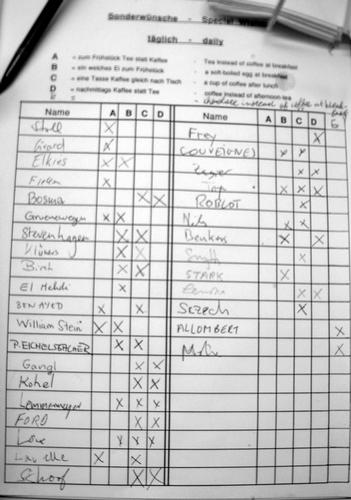 Sonderwünsche - Special
täglich - daily
A = zum Frühstück Tee statt Kaffee Tea instead of coffee at breakfast
B = ein weiches Ei zum Frühstück a soft-boiled egg at breakfast
C = eine Tasse Kaffee gleich nach Tisch a cup of coffee after lunch
D = nachmittags Kaffee statt Tee coffee instead of afternoon tea
chocolate instead of coffee at
Name A B C D Name A B C D E
Stoll X Frey X
Girard X COUVEIGNES X X
Elkies X X X X
Top X X X
Bosma X X ROBLOT X
Gruenewegen X X X X
Stevenhagen X X Beukers X X
X X Smyth X
Birch X X STARK X
El Mehdi X X X
BEN AYED X X X
William Stein X X ALLOMBERT X
P. EICHELSBACHER X X X
Gangl X X
Kohel X X
X X X
FORD X X
Love X X X
X X
Schoof X X